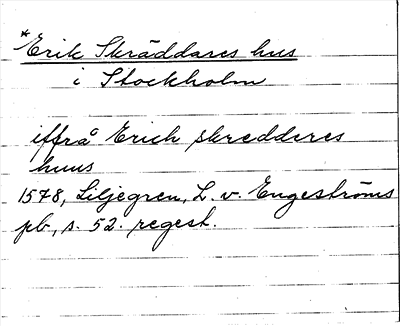 *Erik Skräddares hus
i Stockholm
iffrå Erich skredderes
huus
1578, Liljegren, L. v. Engeströms
pb, s. 52. regest.